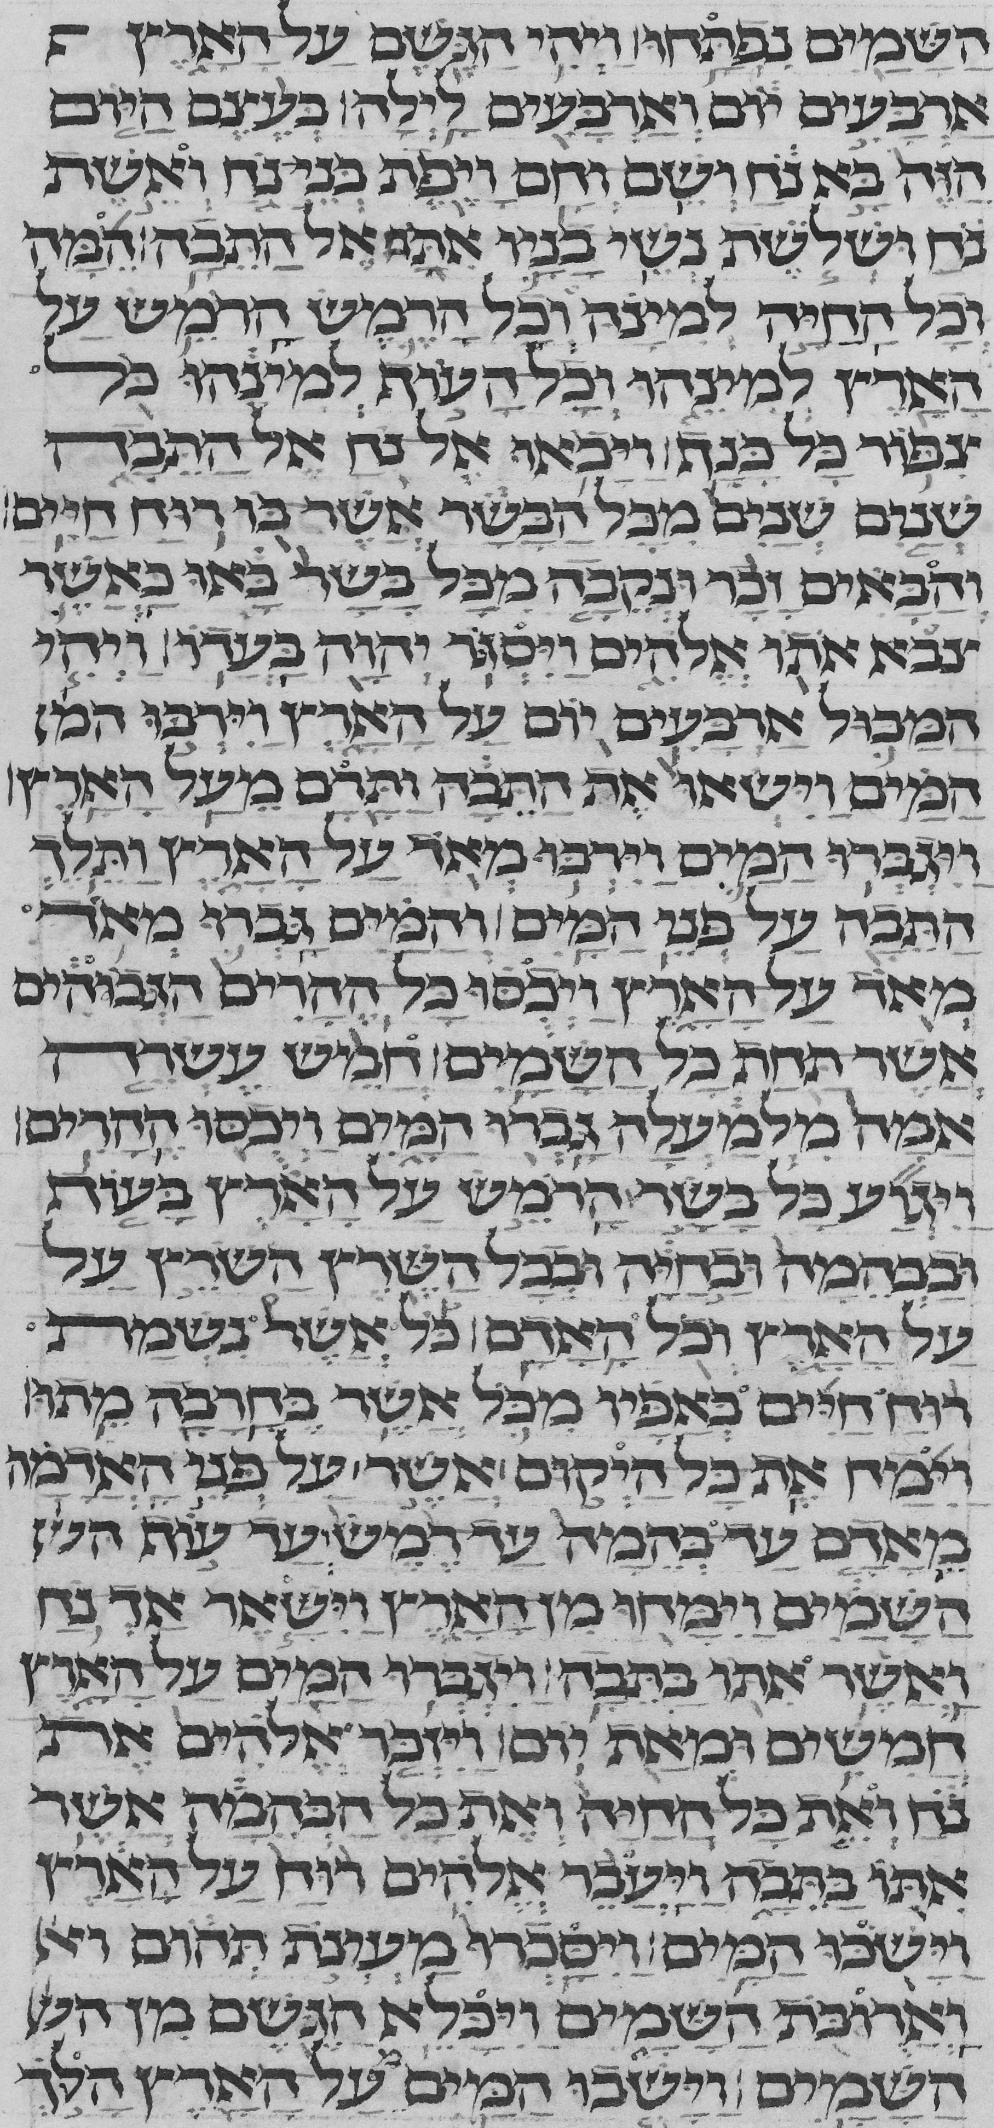 השמים נפתחו׀ ויהי הגשם על הארץ
ארבעים יום וארבעים לילה׀ בעצם היום
הזה בא נח ושם וחם ויפת בני נח ואשת
נח ושלשת נשי בניו אתם אל התבה׀ המה
וכל החיה למינה וכל הרמש הרמש על
הארץ למינהו וכל העוף למינהו כל
צפור כל כנף׀ ויבאו אל נח אל התבה
שנים שנים מכל הבשר אשר בו רוח חיים׀
והבאים זכר ונקבה מכל בשר באו כאשר
צוה אתו אלהים ויסגר יהוה בעדו׀ ויהי
המבול ארבעים יום על הארץ וירבו המ
המים וישאו את התבה ותרם מעל הארץ׀
ויגברו המים וירבו מאד על הארץ ותלך
התבה על פני המים׀ והמים גברו מאד
מאד על הארץ ויכסו כל ההרים הגבוהים
אשר תחת כל השמים׀ חמש עשרה
אמה מלמעלה גברו המים ויכסו ההרים׀
ויגוע כל בשר הרמש על הארץ בעוף
ובבהמה ובחיה ובכל השרץ השרץ על
על הארץ וכל האדם׀ כל אשר נשמת
רוח חיים באפיו מכל אשר בחרבה מתו׀
וימח את כל היקום׀ אשר׀ על פני האדמה
מאדם עד בהמה עד רמש ועד עוף הש
השמים וימחו מן הארץ וישאר אך נח
ואשר אתו בתבה׀ ויגברו המים על הארץ
חמשים ומאת יום׀ ויזכר אלהים את
נח ואת כל החיה ואת כל הבהמה אשר
אתו בתבה ויעבר אלהים רוח על הארץ
וישכו המים׀ ויסכרו מעינת תהום וא
וארובת השמים ויכלא הגשם מן הש
השמים׀ וישבו המים מעל הארץ הלוך